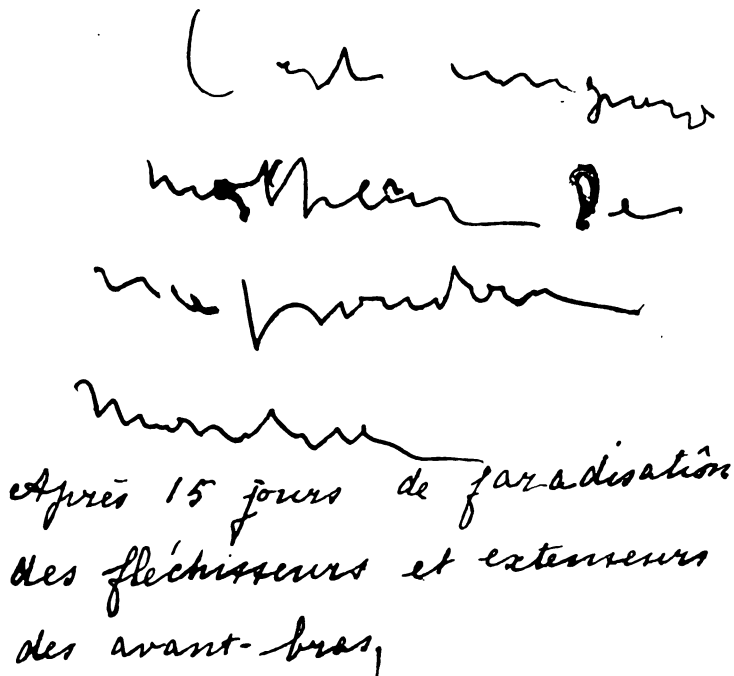 C'est un grand
malheur De
ne pouvoir
Après 15 jours de faradisatiôn
des fléchisseurs et extenseurs
des avant-bras,